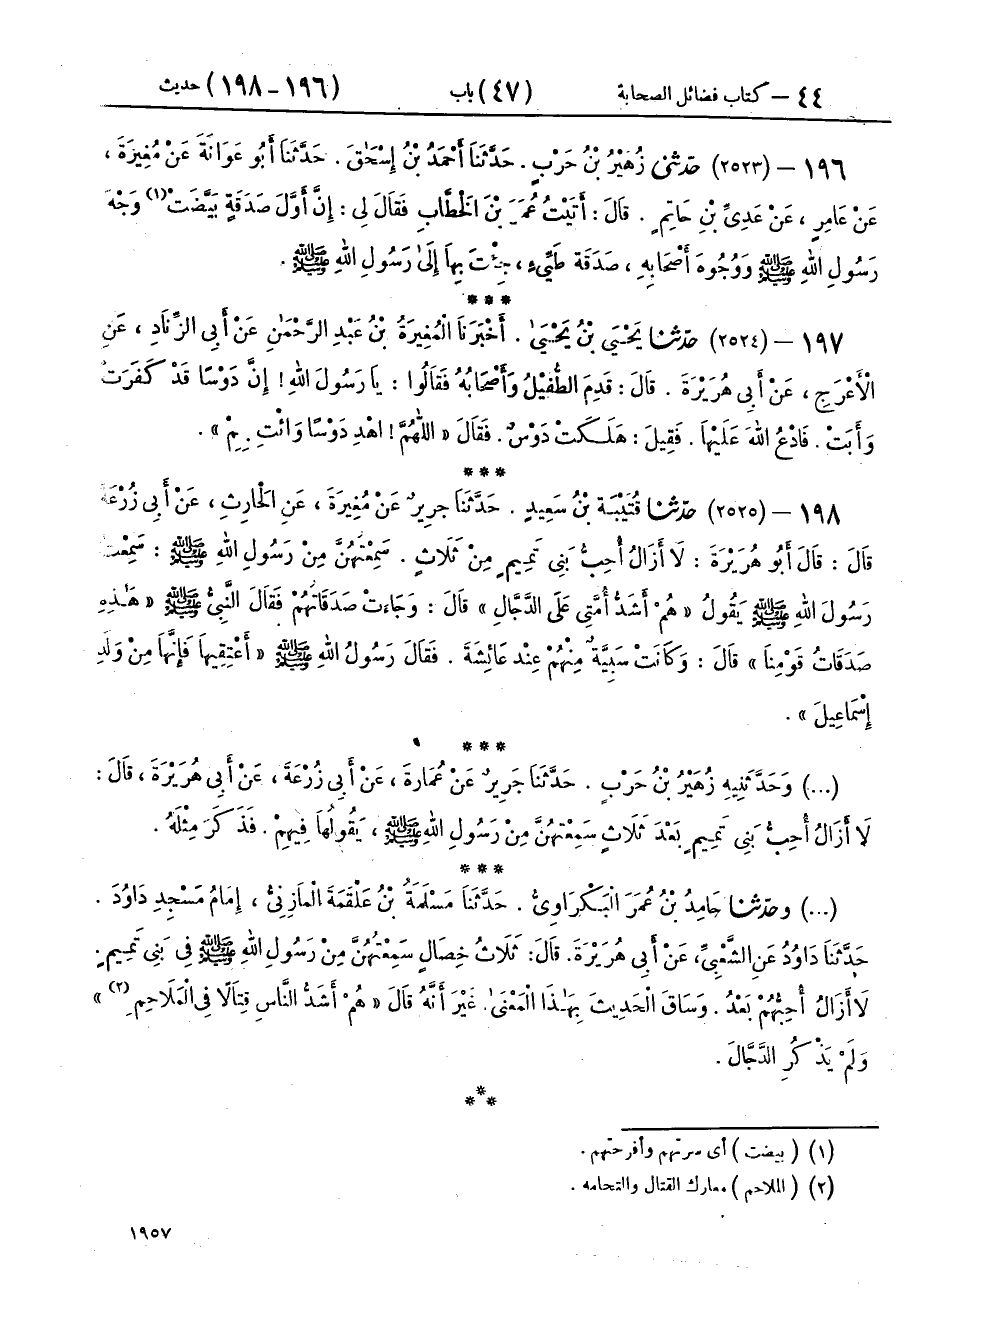 ٤٤ – كتاب فضائل الصحابة (٤٧) باب (١٩٦ - ١٩٨) حديث
١٩٦ – (٢٥٢٣) حَدَّثَنِي زُهَيْرُ بْنُ حَرْبٍ . حَدَّثَنَا أَحْمَدُ بْنُ إِسْحَٰقَ . حَدَّثَنَا أَبُو عَوَانَةَ عَنْ مُغِيرَةَ ،
عَنْ عَامِرٍ ، عَنْ عَدِيِّ بْنِ حَاتِمٍ . قَالَ : أَتَيْتُ عُمَرَ بْنَ الْخَطَّابِ فَقَالَ لِي : إِنَّ أَوَّلَ صَدَقَةٍ بَيَّضَتْ(١) وَجْهَ
رَسُولِ اللهِ ﷺ وَوُجُوهَ أَصْحَابِهِ ، صَدَقَةُ طَيِّيءٍ ، جِئْتَ بِهَا إِلَىٰ رَسُولِ اللهِ ﷺ .
***
١٩٧ – (٢٥٢٤) حَدَّثَنَا يَحْيَىٰ بْنُ يَحْيَىٰ . أَخْبَرَنَا الْمُغِيرَةُ بْنُ عَبْدِ الرَّحْمَٰنِ عَنْ أَبِي الزِّنَادِ ، عَنِ
الْأَعْرَجِ ، عَنْ أَبِي هُرَيْرَةَ . قَالَ : قَدِمَ الطُّفَيْلُ وَأَصْحَابُهُ فَقَالُوا : يَا رَسُولَ اللهِ ! إِنَّ دَوْسًا قَدْ كَفَرَتْ
وَأَبَتْ . فَادْعُ اللهَ عَلَيْهَا . فَقِيلَ : هَلَكَتْ دَوْسٌ . فَقَالَ « اللَّهُمَّ ! اهْدِ دَوْسًا وَائْتِ بِهِمْ » .
***
١٩٨ – (٢٥٢٥) حَدَّثَنَا قُتَيْبَةُ بْنُ سَعِيدٍ . حَدَّثَنَا جَرِيرٌ عَنْ مُغِيرَةَ ، عَنِ الْحَارِثِ ، عَنْ أَبِي زُرْعَةَ
قَالَ : قَالَ أَبُو هُرَيْرَةَ : لَا أَزَالُ أُحِبُّ بَنِي تَمِيمٍ مِنْ ثَلَاثٍ . سَمِعْتُهُنَّ مِنْ رَسُولِ اللهِ ﷺ : سَمِعْتُ
رَسُولَ اللهِ ﷺ يَقُولُ « هُمْ أَشَدُّ أُمَّتِي عَلَى الدَّجَّالِ » قَالَ : وَجَاءَتْ صَدَقَاتُهُمْ فَقَالَ النَّبِيُّ ﷺ « هَٰذِهِ
صَدَقَاتُ قَوْمِنَا » قَالَ : وَكَانَتْ سَبِيَّةٌ مِنْهُمْ عِنْدَ عَائِشَةَ . فَقَالَ رَسُولُ اللهِ ﷺ « أَعْتِقِيهَا فَإِنَّهَا مِنْ وَلَدِ
إِسْمَاعِيلَ » .
***
(...) وَحَدَّثَنِيهِ زُهَيْرُ بْنُ حَرْبٍ . حَدَّثَنَا جَرِيرٌ عَنْ عُمَارَةَ ، عَنْ أَبِي زُرْعَةَ ، عَنْ أَبِي هُرَيْرَةَ ، قَالَ :
لَا أَزَالُ أُحِبُّ بَنِي تَمِيمٍ بَعْدَ ثَلَاثٍ سَمِعْتُهُنَّ مِنْ رَسُولِ اللهِ ﷺ ، يَقُولُهَا فِيهِمْ . فَذَكَرَ مِثْلَهُ .
***
(...) وَحَدَّثَنَا حَامِدُ بْنُ عُمَرَ الْبَكْرَاوِيُّ . حَدَّثَنَا مَسْلَمَةُ بْنُ عَلْقَمَةَ الْمَازِنِيُّ ، إِمَامُ مَسْجِدِ دَاوُدَ .
حَدَّثَنَا دَاوُدُ عَنِ الشَّعْبِيِّ، عَنْ أَبِي هُرَيْرَةَ. قَالَ: ثَلَاثُ خِصَالٍ سَمِعْتُهُنَّ مِنْ رَسُولِ اللهِ ﷺ فِي بَنِي تَمِيمٍ .
لَا أَزَالُ أُحِبُّهُمْ بَعْدُ . وَسَاقَ الْحَدِيثَ بِهَٰذَا الْمَعْنَىٰ. غَيْرَ أَنَّهُ قَالَ « هُمْ أَشَدُّ النَّاسِ قِتَالًا فِي الْمَلَاحِمِ(٢) »
وَلَمْ يَذْكُرِ الدَّجَّالَ .
***
(١) ( بيضت ) أى سرتهم وأفرحتهم .
(٢) ( الملاحم ) معارك القتال والتحامه .
١٩٥٧